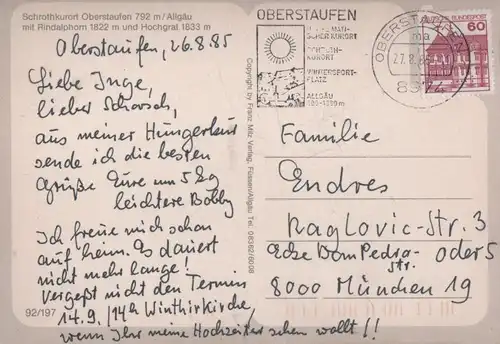 Schrothkurort Oberstaufen 792 m/Allgäu
mit Rindalphorn 1822 m und Hochgrat 1833 m
Oberstaufen, 26.8.85
Liebe Inge,
lieber Schorsch,
aus meiner Hungerkur
sende ich die besten
Grüße Eure um 5 kg
leichtere Bobby
Ich freue mich schon
auf heim. Es dauert
nicht mehr lange!
Vergeßt nicht den Termin
14.9. / 14h Winthirkirche,
wenn Ihr meine Hochzeiter sehen wollt!!
92/197
Copyright by Franz Milz Verlag, Füssen/Allgäu Tel. 08362/8008
OBERSTAUFEN
SCHER KURORT
KURORT
WINTERSPORT-
PLATZ
ALLGÄU
OBERSTAUFEN
ma
27.8.85
8974
DEUTSCHE BUNDESPOST
60
Familie
Endres
Raglovic-Str. 3
Ecke Dom Pedro- oder 5
str.
8000 München 19